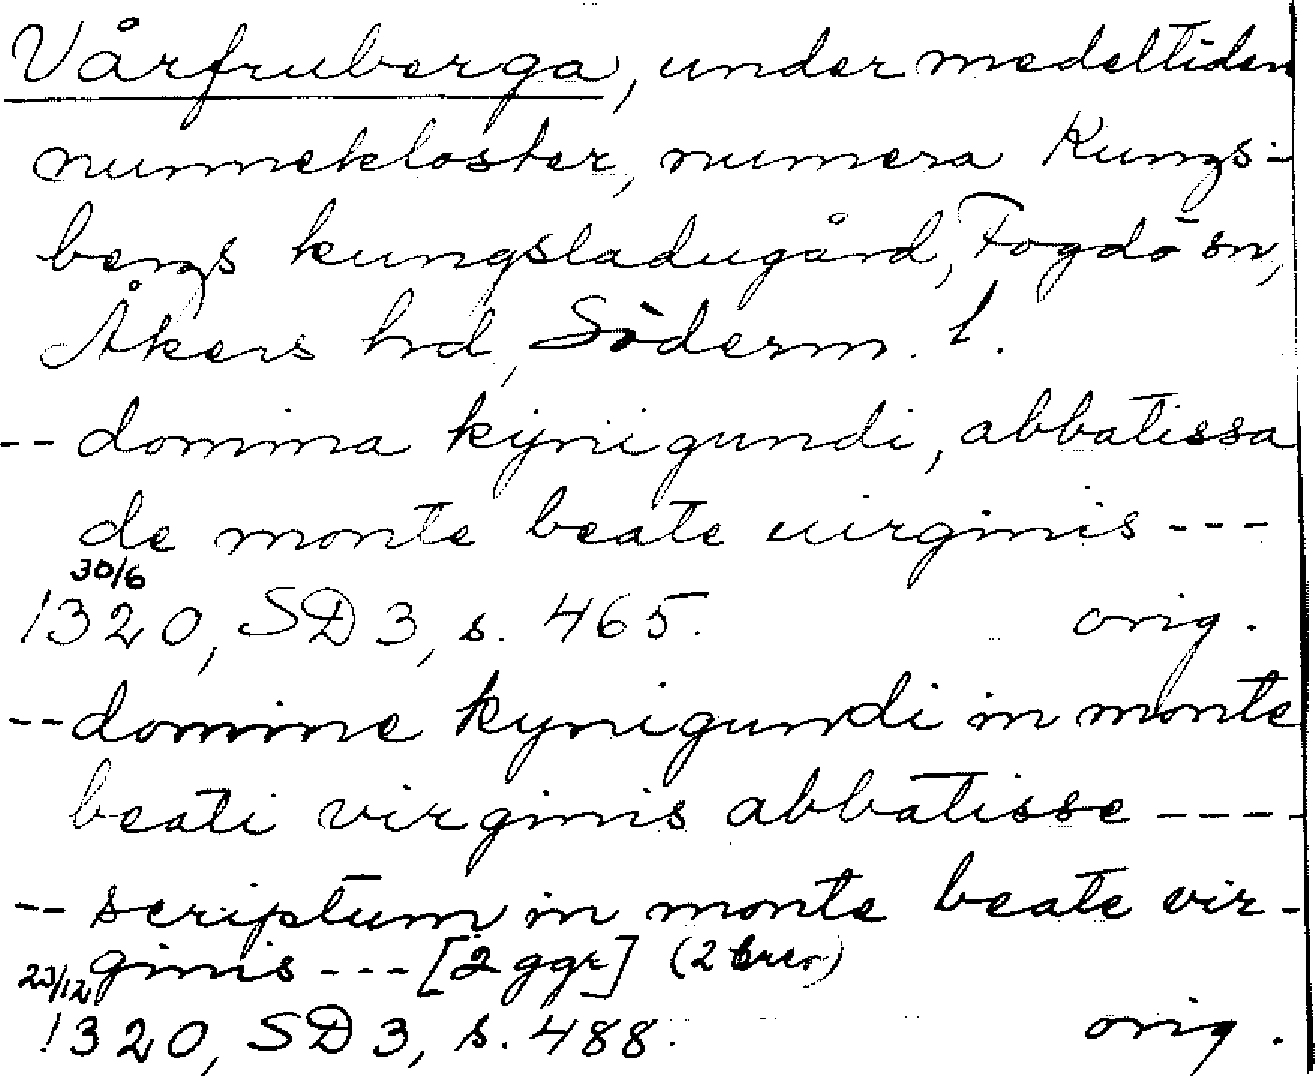 Vårfruberga, under medeltiden
nunnekloster, numera Kungs-
bergs kungsladugård, Fogdö sn,
Åkers hd, Söderm. l.
-- domina kynigundi, abbatissa
de monte beate uirginis ---
30/6
1320, SD 3, s. 465. orig.
-- domine kynigundi in monte
beati virginis abbatisse ----
-- scriptum in monte beate vir-
ginis --- [2 ggr] (2 brev)
23/12
1320, SD 3, s. 488. orig.